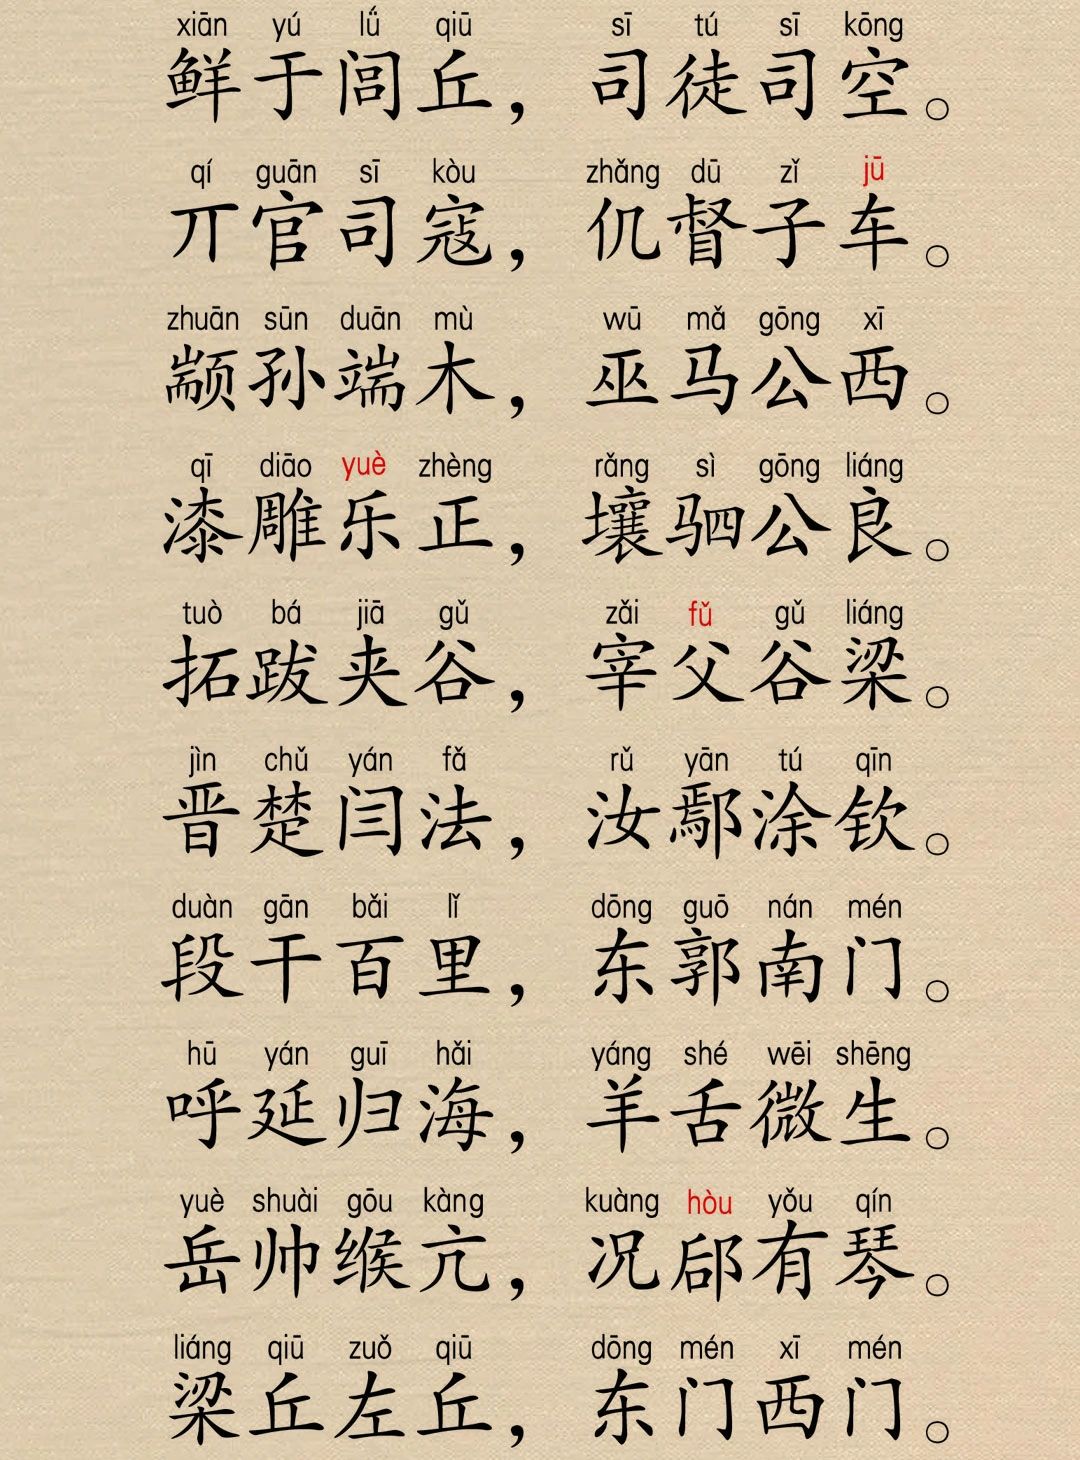 xiān yú lǘ qiū sī tú sī kōng
鲜于闾丘，司徒司空。
qí guān sī kòu zhǎng dū zǐ jū
亓官司寇，仉督子车。
zhuān sūn duān mù wū mǎ gōng xī
颛孙端木，巫马公西。
qī diāo yuè zhèng rǎng sì gōng liáng
漆雕乐正，壤驷公良。
tuò bá jiā gǔ zǎi fǔ gǔ liáng
拓跋夹谷，宰父谷梁。
jìn chǔ yán fǎ rǔ yān tú qīn
晋楚闫法，汝鄢涂钦。
duàn gān bǎi lǐ dōng guō nán mén
段干百里，东郭南门。
hū yán guī hǎi yáng shé wēi shēng
呼延归海，羊舌微生。
yuè shuài gōu kàng kuàng hòu yǒu qín
岳帅缑亢，况郈有琴。
liáng qiū zuǒ qiū dōng mén xī mén
梁丘左丘，东门西门。